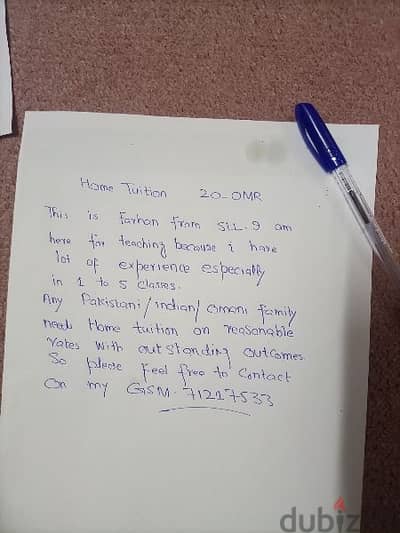 Home Tuition 20-OMR
This is Farhan from SLL. I am
here for teaching because i have
lot of experience especially
in 1 to 5 classes.
Any Pakistani/indian/omani family
needs Home tuition on reasonable
rates with outstanding outcomes.
So please feel free to contact
on my GSM. 71217533
dubiz